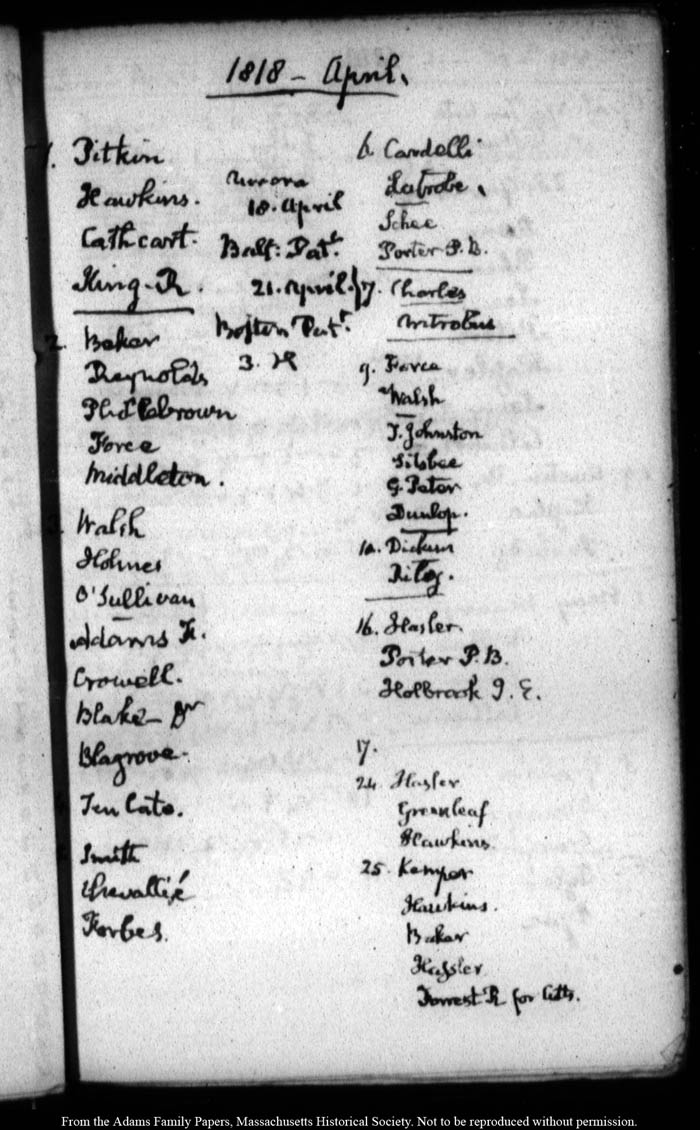 1818 - April.
1. Pitkin
Hawkins.
Cathcart.
King. R.
2. Baker
Reynolds
Force
Middleton.
3. Walsh
Holmes
O'Sullivan
Adams
Crowell.
Blake - Dr
Blagrove.
Ten Cate.
Smith
Forbes.
Aurora
18. April
Balt: Pat.t
21. April
Boston Pat.t
3.
6. Cardelli
Latrobe.
Schee
Porter P. B.
7. Charles
Antrobus
9. Force
Walsh
J. Johnston
Silsbee
G. Peter
Dunlop.
10. Dickins
Riley.
16. Hasler.
Porter P. B.
Holbrook J. E.
17.
24. Hasler
Greenleaf
Hawkins
25. Kemper
Hawkins.
Baker
Hassler
Forrest R for Citts.
From the Adams Family Papers, Massachusetts Historical Society. Not to be reproduced without permission.